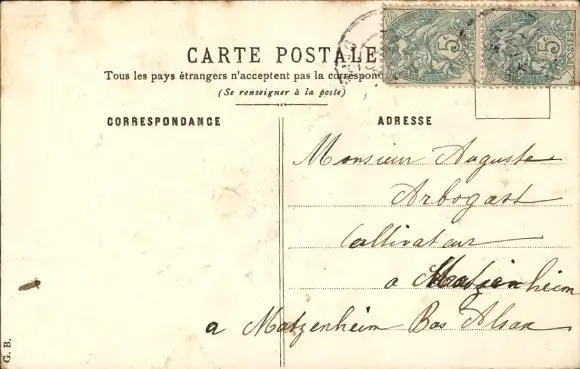 CARTE POSTALE
Tous les pays étrangers n'acceptent pas la correspond
(Se renseigner à la poste)
CORRESPONDANCE
ADRESSE
Monsieur Auguste
Arbogast
Cultivateur
a Matzenheim
a Matzenheim Bas Alsax
G. B.
5
5
POSTES